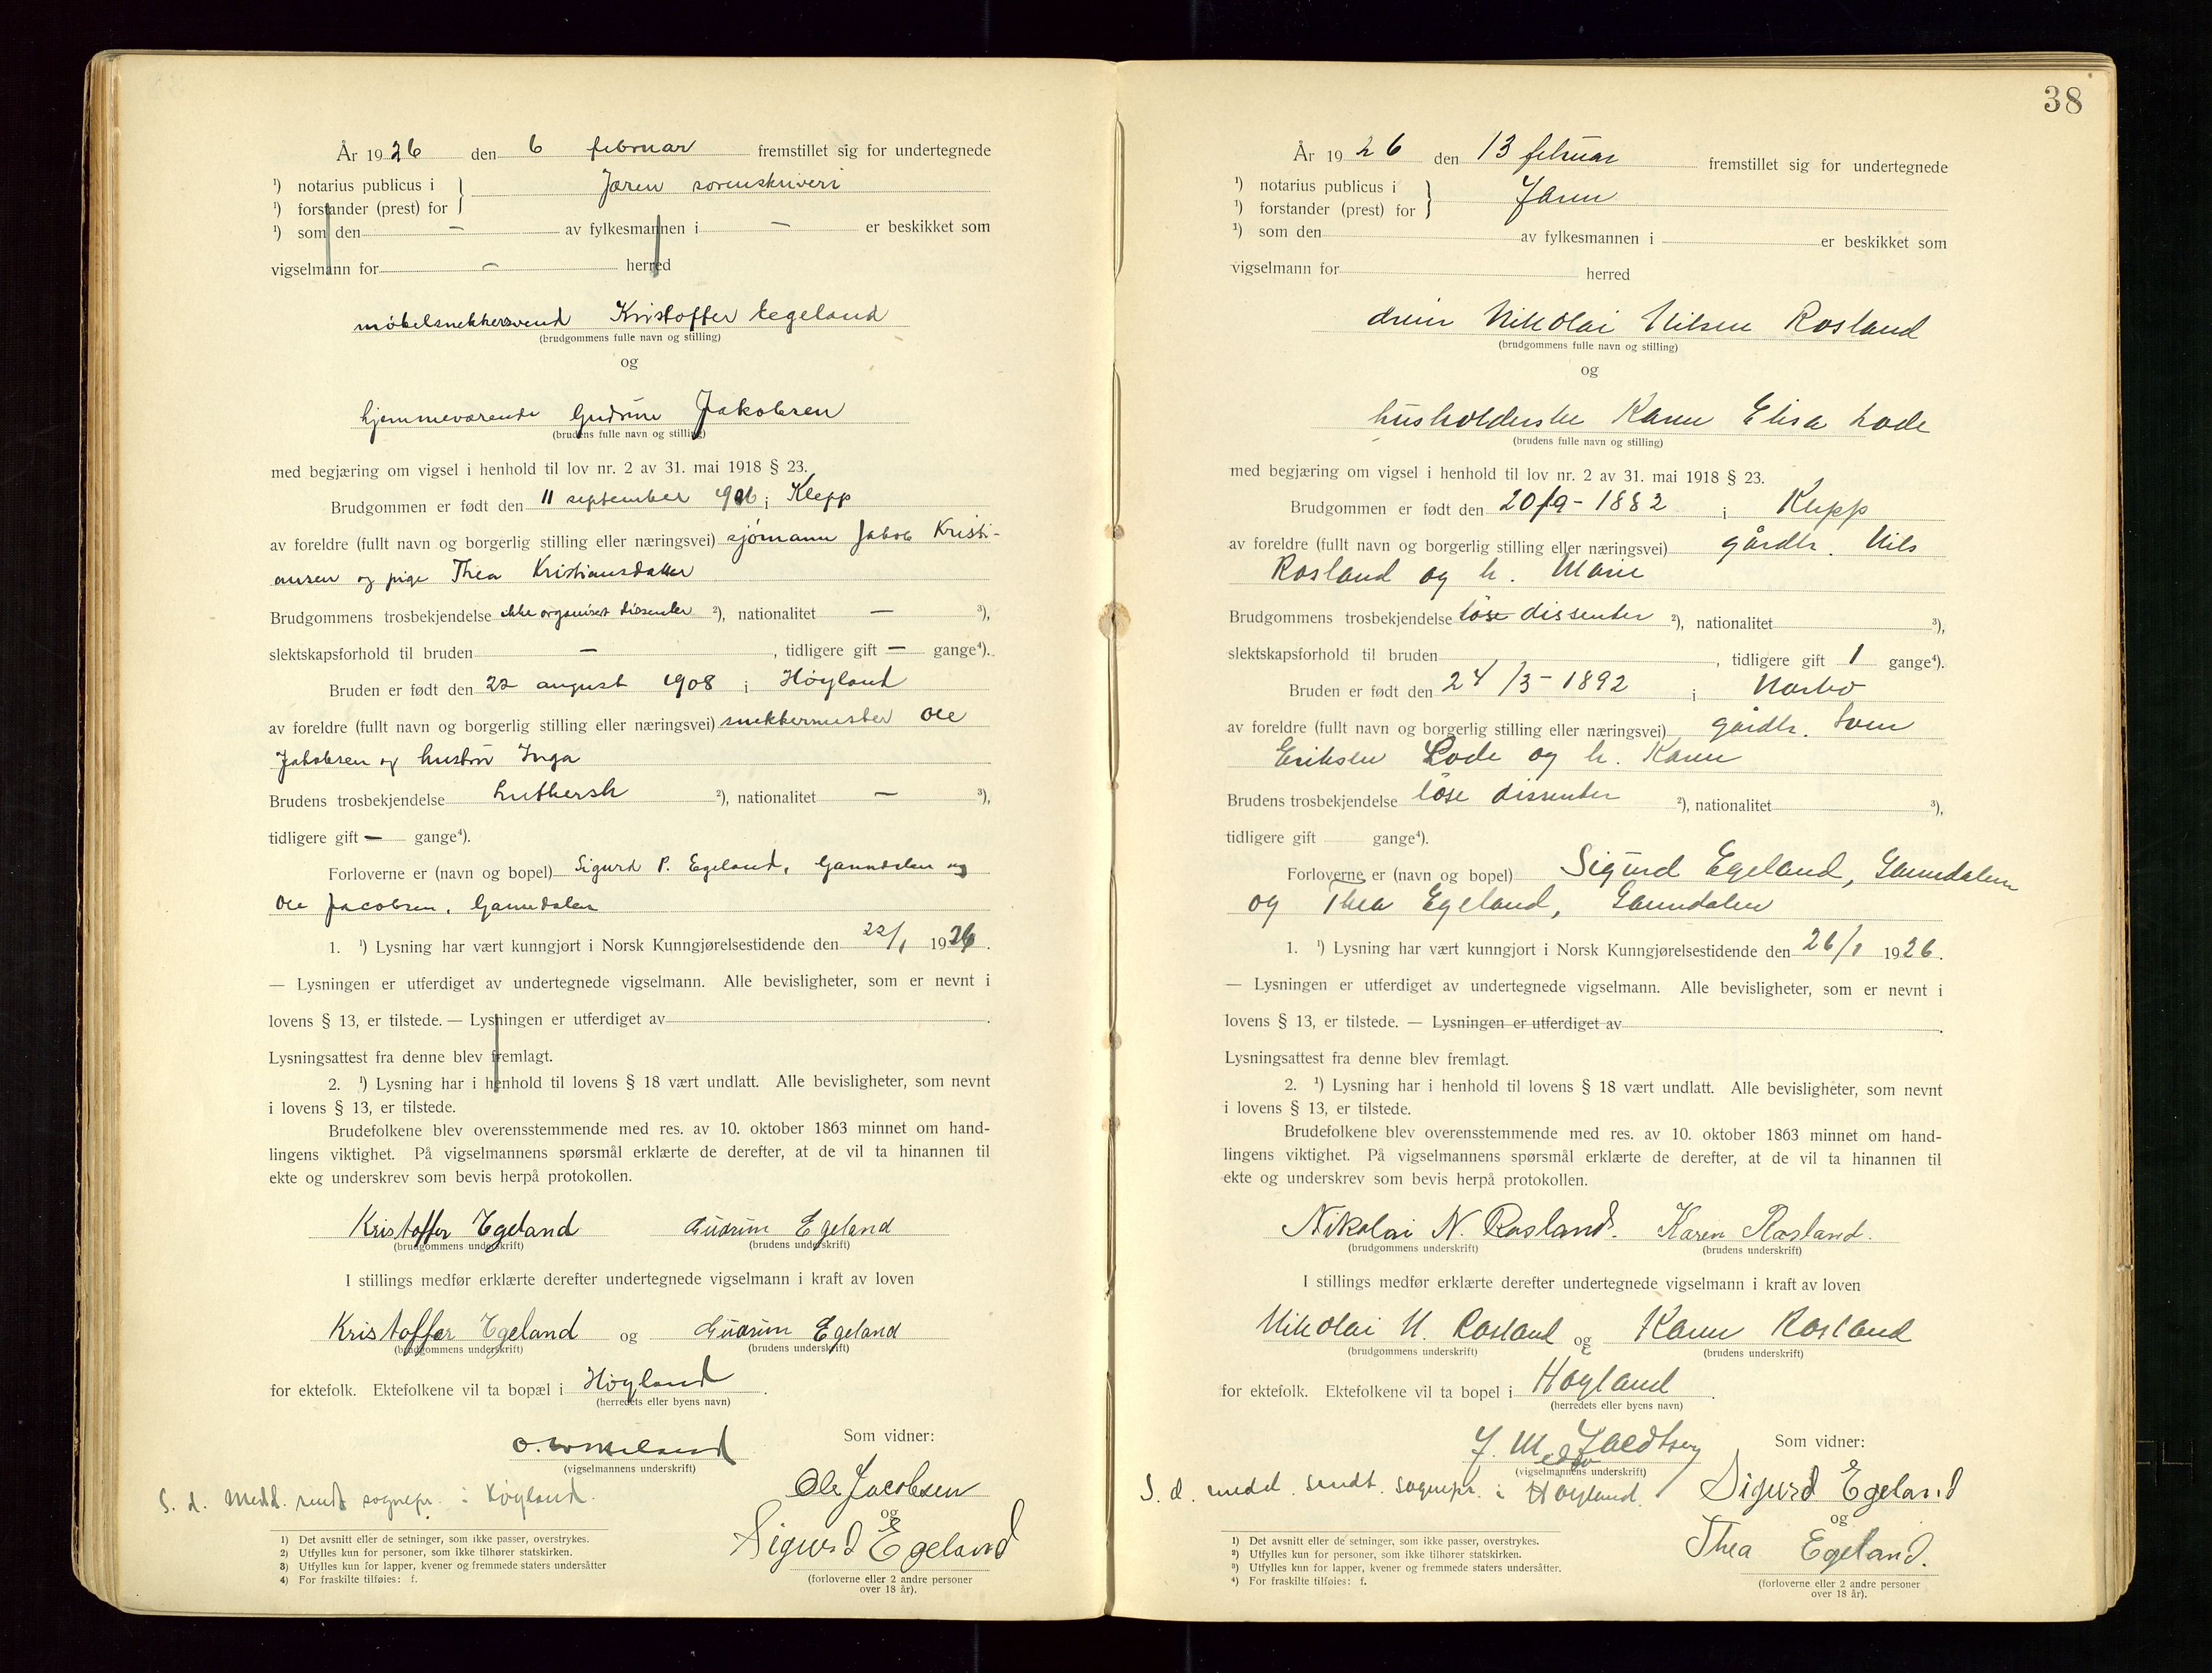 År 1926 den 6 februar fremstillet sig for undertegnede
¹) notarius publicus i } Jæren sorenskriveri
¹) forstander (prest) for
¹) som den — av fylkesmannen i — er beskikket som
vigselmann for — herred
møbelsnekkersvend Kristoffer Egeland
(brudgommens fulle navn og stilling)
og
hjemmeværende Gudrun Jakobsen
(brudens fulle navn og stilling)
med begjæring om vigsel i henhold til lov nr. 2 av 31. mai 1918 § 23.
Brudgommen er født den 11 september 1906 i Klepp
av foreldre (fullt navn og borgerlig stilling eller næringsvei) sjømann Jakob Kristi-
ansen og pige Thea Kristiansdatter
Brudgommens trosbekjendelse ikke organisert dissenter ²), nationalitet — ³),
slektskapsforhold til bruden — , tidligere gift — gange⁴).
Bruden er født den 22 august 1908 i Høyland
av foreldre (fullt navn og borgerlig stilling eller næringsvei) snekkermester Ole
Jakobsen og hustru Inga
Brudens trosbekjendelse Luthersk ²), nationalitet — ³),
tidligere gift — gange⁴).
Forloverne er (navn og bopel) Sigurd P. Egeland, Ganndalen og
Ole Jacobsen, Ganndalen
1. ¹) Lysning har vært kunngjort i Norsk Kunngjørelsestidende den 22/1 1926.
— Lysningen er utferdiget av undertegnede vigselmann. Alle bevisligheter, som er nevnt i
lovens § 13, er tilstede. — Lysningen er utferdiget av
Lysningsattest fra denne blev fremlagt.
2. ¹) Lysning har i henhold til lovens § 18 vært undlatt. Alle bevisligheter, som nevnt
i lovens § 13, er tilstede.
Brudefolkene blev overensstemmende med res. av 10. oktober 1863 minnet om hand-
lingens viktighet. På vigselmannens spørsmål erklærte de derefter, at de vil ta hinannen til
ekte og underskrev som bevis herpå protokollen.
Kristoffer Egeland Gudrun Egeland
(brudgommens underskrift) (brudens underskrift)
I stillings medfør erklærte derefter undertegnede vigselmann i kraft av loven
Kristoffer Egeland og Gudrun Egeland
(brudgommens underskrift) (brudens underskrift)
for ektefolk. Ektefolkene vil ta bopæl i Høyland.
(herredets eller byens navn)
Som vidner:
(vigselmannens underskrift)
Ole Jacobsen
S. d. Medd. sendt sognepr. i Høyland.
og
Sigurd Egeland
(forloverne eller 2 andre personer
over 18 år).
1) Det avsnitt eller de setninger, som ikke passer, overstrykes.
2) Utfylles kun for personer, som ikke tilhører statskirken.
3) Utfylles kun for lapper, kvener og fremmede staters undersåtter
4) For fraskilte tilføies: f.
38
År 1926 den 13 februar fremstillet sig for undertegnede
¹) notarius publicus i } Jæren
¹) forstander (prest) for
¹) som den av fylkesmannen i er beskikket som
vigselmann for herred
Nikolai Nilsen Rosland
(brudgommens fulle navn og stilling)
og
husholderske Karen Elisa Lode
(brudens fulle navn og stilling)
med begjæring om vigsel i henhold til lov nr. 2 av 31. mai 1918 § 23.
Brudgommen er født den 20/9-1882 i Klepp
av foreldre (fullt navn og borgerlig stilling eller næringsvei) gårdbr. Nils
Rosland og h. Marie
Brudgommens trosbekjendelse løse dissenter ²), nationalitet ³),
slektskapsforhold til bruden , tidligere gift 1 gange⁴).
Bruden er født den 24/3-1892 i Narbø
av foreldre (fullt navn og borgerlig stilling eller næringsvei) gårdbr. Sven
Eriksen Lode og h. Karen
Brudens trosbekjendelse løse dissenter ²), nationalitet ³),
tidligere gift gange⁴).
Forloverne er (navn og bopel) Sigurd Egeland, Ganndalen
og Thea Egeland, Ganndalen
1. ¹) Lysning har vært kunngjort i Norsk Kunngjørelsestidende den 26/1 1926.
— Lysningen er utferdiget av undertegnede vigselmann. Alle bevisligheter, som er nevnt i
lovens § 13, er tilstede. — Lysningen er utferdiget av
Lysningsattest fra denne blev fremlagt.
2. ¹) Lysning har i henhold til lovens § 18 vært undlatt. Alle bevisligheter, som nevnt
i lovens § 13, er tilstede.
Brudefolkene blev overensstemmende med res. av 10. oktober 1863 minnet om hand-
lingens viktighet. På vigselmannens spørsmål erklærte de derefter, at de vil ta hinannen til
ekte og underskrev som bevis herpå protokollen.
Nikolai N. Rosland. Karen Rosland.
(brudgommens underskrift) (brudens underskrift)
I stillings medfør erklærte derefter undertegnede vigselmann i kraft av loven
Nikolai N. Rosland og Karen Rosland
(brudgommens underskrift) (brudens underskrift)
for ektefolk. Ektefolkene vil ta bopel i Høyland.
(herredets eller byens navn)
Som vidner:
(vigselmannens underskrift)
S. d. medd. sendt. sognepr. i Høyland.
Sigurd Egeland
og
Thea Egeland.
(forloverne eller 2 andre personer
over 18 år).
1) Det avsnitt eller de setninger, som ikke passer, overstrykes.
²) Utfylles kun for personer, som ikke tilhører statskirken.
³) Utfylles kun for lapper, kvener og fremmede staters undersåtter.
⁴) For fraskilte tilføies: f.